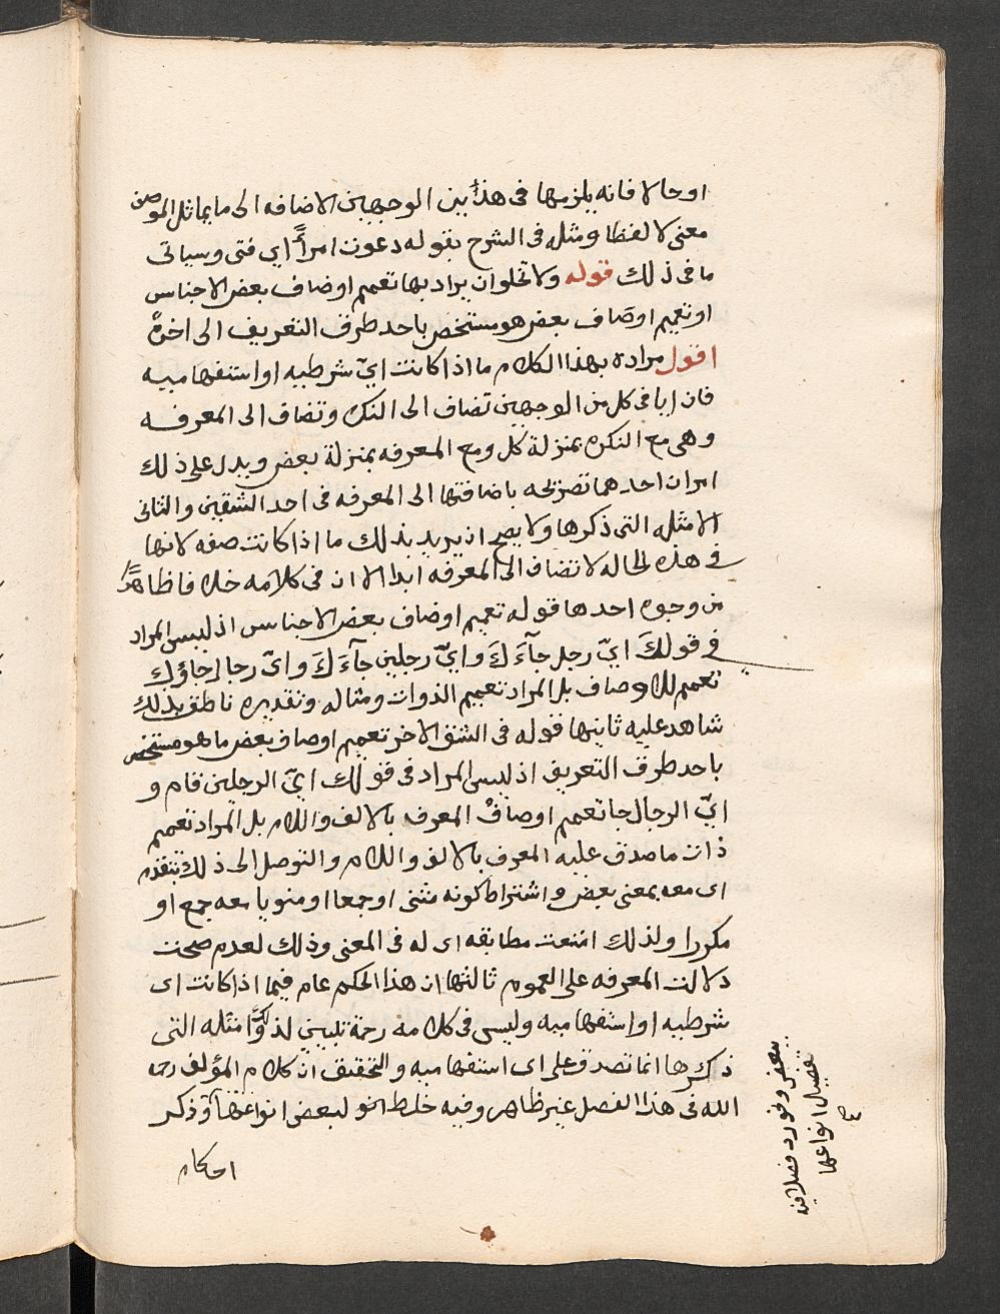 او حالا فانه يلزمها فى هذين الوجهين الاضافه الى ما يماثل الموصوف
معنى لا لفظا ومثله فى الشرح بقوله دعوت امرأً اي فتى وسياتى
ما فى ذلك قوله ولا تخلوان يراد بها تعميم اوصاف بعض الاجناس
او تعميم اوصاف بعض هو مستخص باحد طرق التعريف الى اخره
اقول مراده بهذا الكلام ما اذا كانت ايّ شرطيه او استفهاميه
فان ايا فى كل من الوجهين تضاف الى النكره وتضاف الى المعرفه
وهى مع النكره بمنزلة كل ومع المعرفه بمنزلة بعض ويدل على ذلك
امران احدهما تصريحه باضافتها الى المعرفه فى احد الشقين والثانى
الامثله التى ذكرها ولا يصح ان يريد بذلك ما اذا كانت صفه لانها
فى هذه الحاله لا تضاف الى المعرفه ابدا الا ان فى كلامه خلافا ظاهرًا
من وجوه احدها قوله تعميم اوصاف بعض الاجناس اذ ليس المراد
فى قولكَ ايّ رجل جآءَكَ وايّ رجلين جآءَكَ وايّ رجال جاؤك
تعميم للاوصاف بل المراد تعميم الذوات ومثاله وتقديره ناطق بذلك
شاهد عليه ثانيها قوله فى الشق الاخر تعميم اوصاف بعض ما هو مستخص
باحد طرق التعريف اذ ليس المراد فى قولك ايّ الرجلين قام و
ايّ الرجال جا تعميم اوصاف المعرف بالالف واللام بل المراد تعميم
ذات ما صدق عليه المعرف بالالف واللام والتوصل الى ذلك بتقدم
اى معه بمعنى بعض واشتراط كونه مثنى او جمعا او منويا معه جمع او
مكررا ولذلك امتنعت مطابقه اى له فى المعنى وذلك لعدم صحت
دلالت المعرفه على العموم ثالثها ان هذا الحكم عام فيما اذا كانت اى
شرطيه او استفهاميه وليس فى كلامه رحمة تبيين لذلك وامثله التى
ذكرها انما تصدق على اى استفهاميه والتحقيق ان كلام المؤلف رحمه
الله فى هذا الفصل غير ظاهر وفيه خلط نحو لبعض انواعها وذكر
احكام
تفصيل انواعها
صح